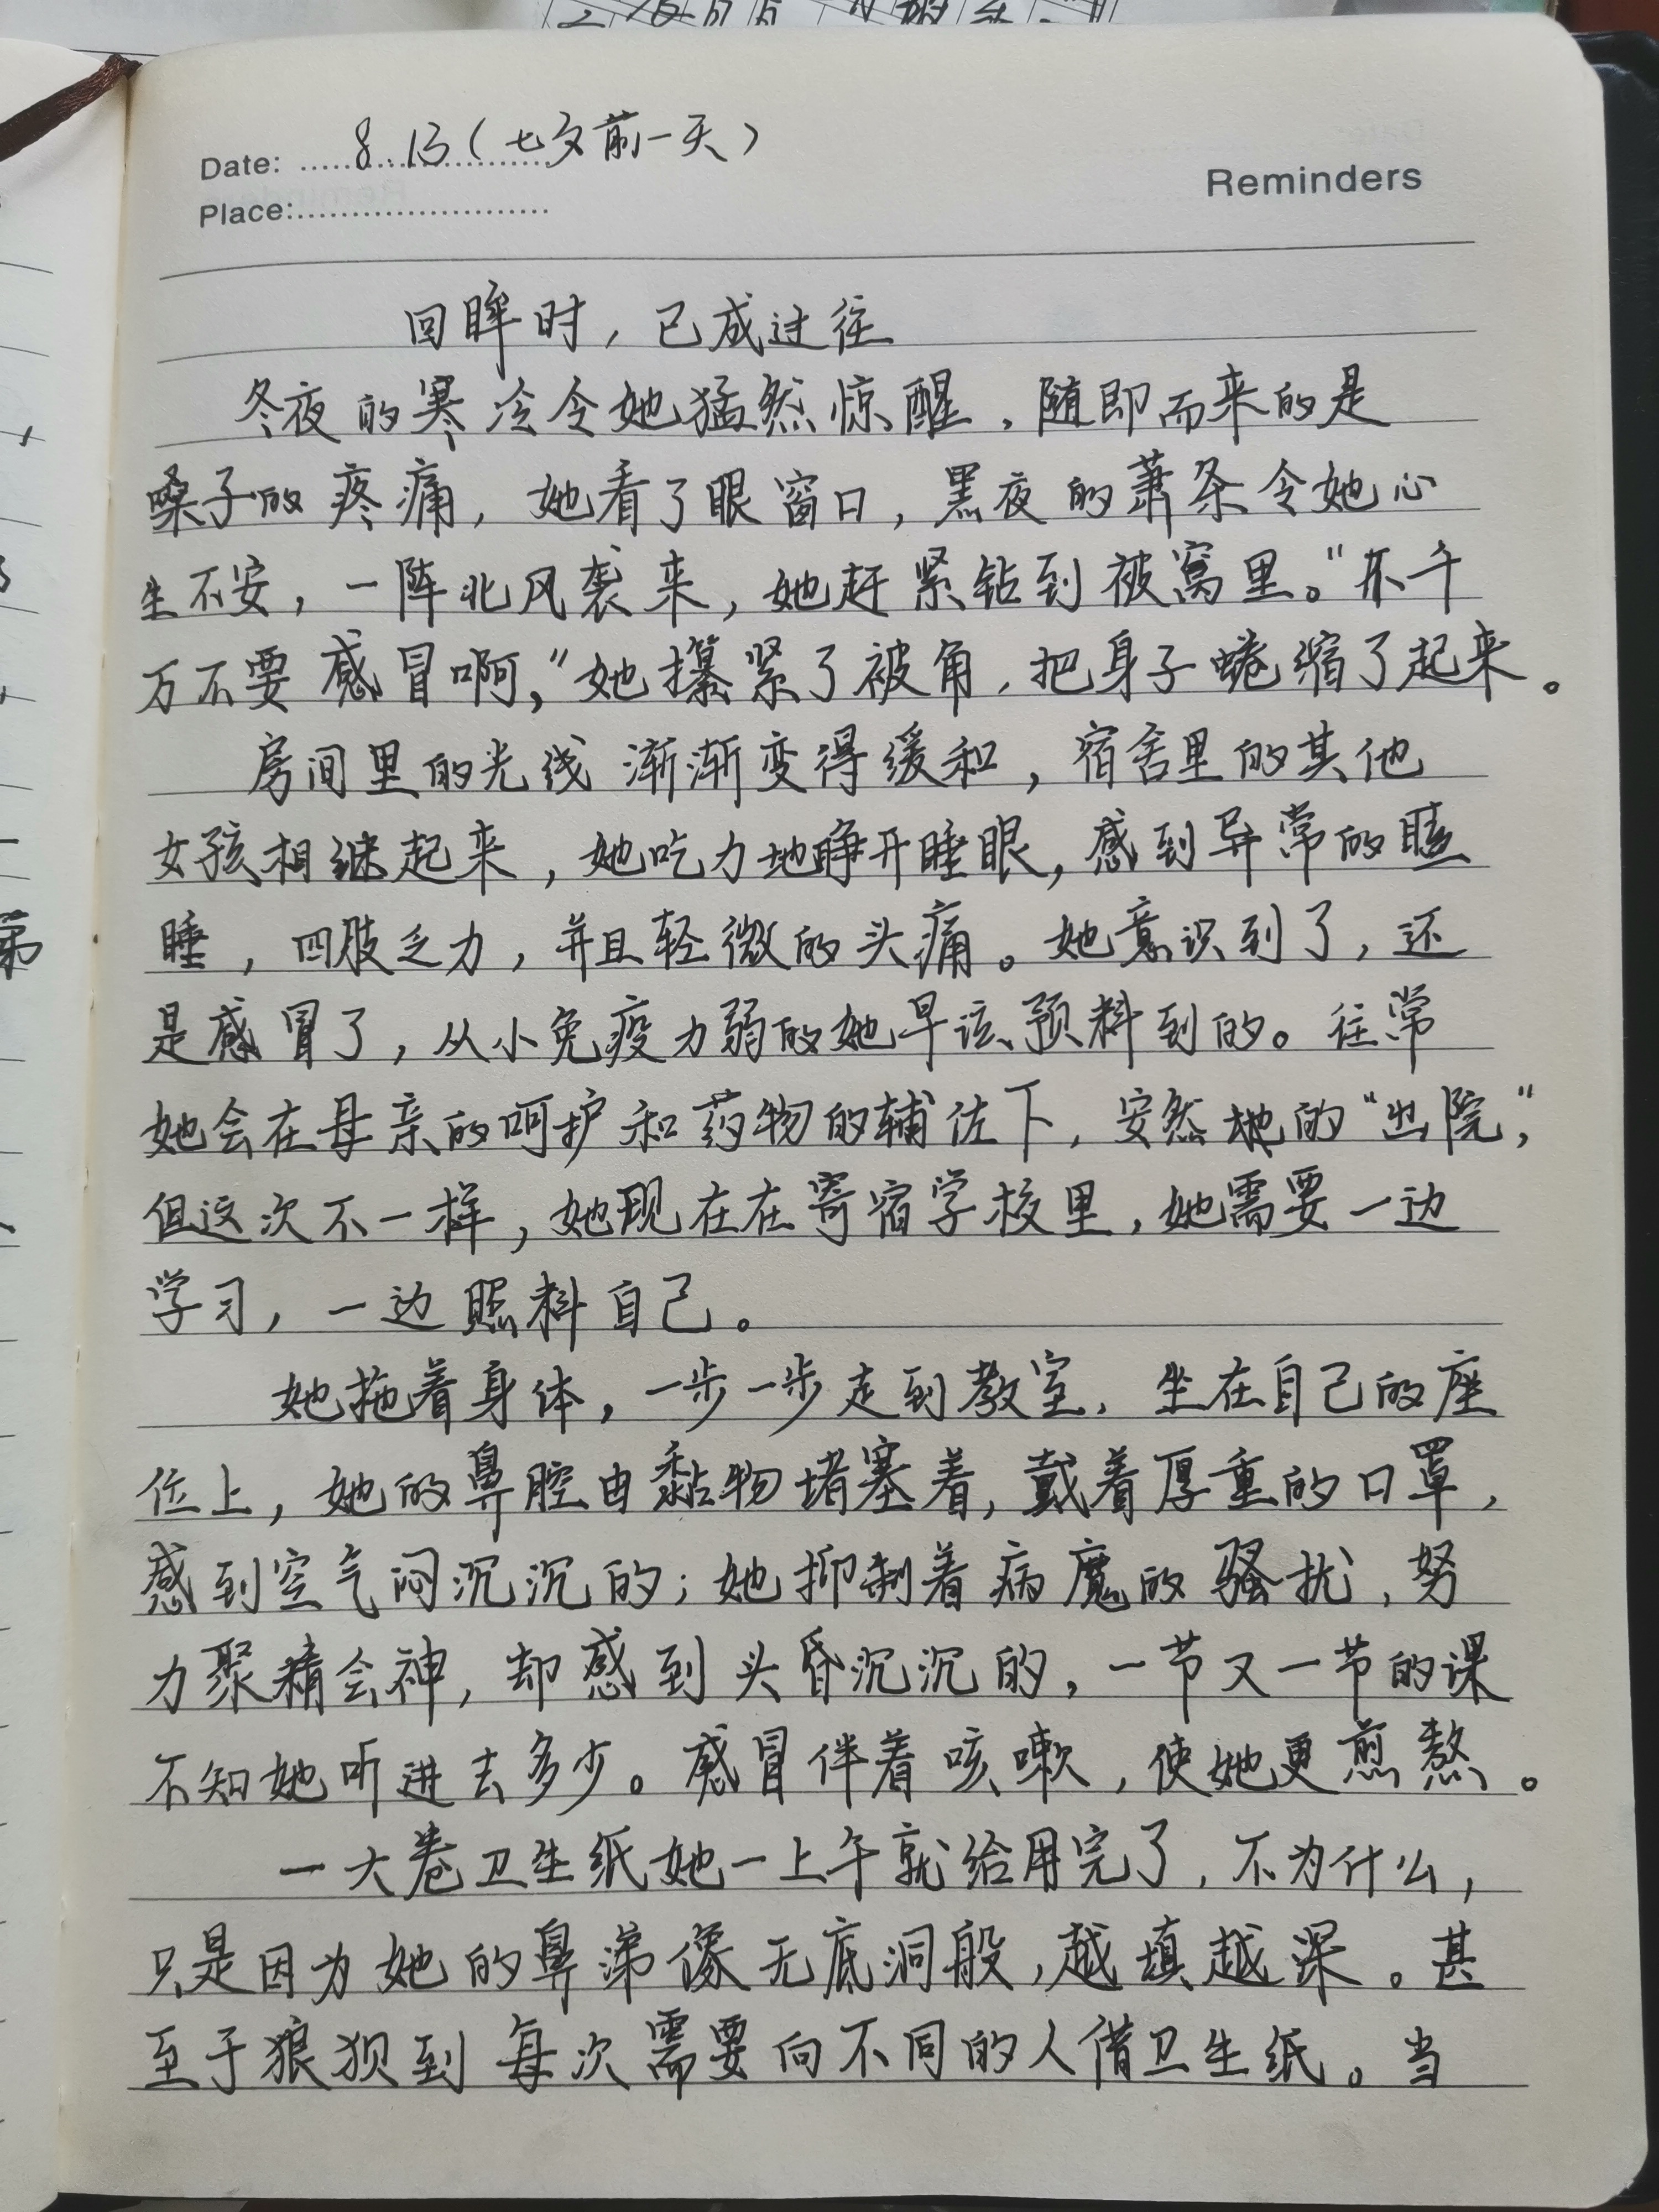 Date: 8.13(七夕前一天)
Place:
Reminders
回眸时,已成过往
冬夜的寒冷令她猛然惊醒,随即而来的是
嗓子的疼痛,她看了眼窗口,黑夜的萧条令她心
生不安,一阵北风袭来,她赶紧钻到被窝里。“千
万不要感冒啊,”她攥紧了被角,把身子蜷缩了起来。
房间里的光线渐渐变得缓和,宿舍里的其他
女孩相继起来,她吃力地睁开睡眼,感到异常的瞌
睡,四肢乏力,并且轻微的头痛。她意识到了,还
是感冒了,从小免疫力弱的她早该预料到的。往常
她会在母亲的呵护和药物的辅佐下,安然地的“出院”,
但这次不一样,她现在在寄宿学校里,她需要一边
学习,一边照料自己。
她拖着身体,一步一步走到教室,坐在自己的座
位上,她的鼻腔由黏物堵塞着,戴着厚重的口罩,
感到空气闷沉沉的;她抑制着病魔的骚扰,努
力聚精会神,却感到头昏沉沉的,一节又一节的课
不知她听进去多少。感冒伴着咳嗽,使她更煎熬。
一大卷卫生纸她一上午就给用完了,不为什么,
只是因为她的鼻涕像无底洞般,越填越深。甚
至于狼狈到每次需要向不同的人借卫生纸。当